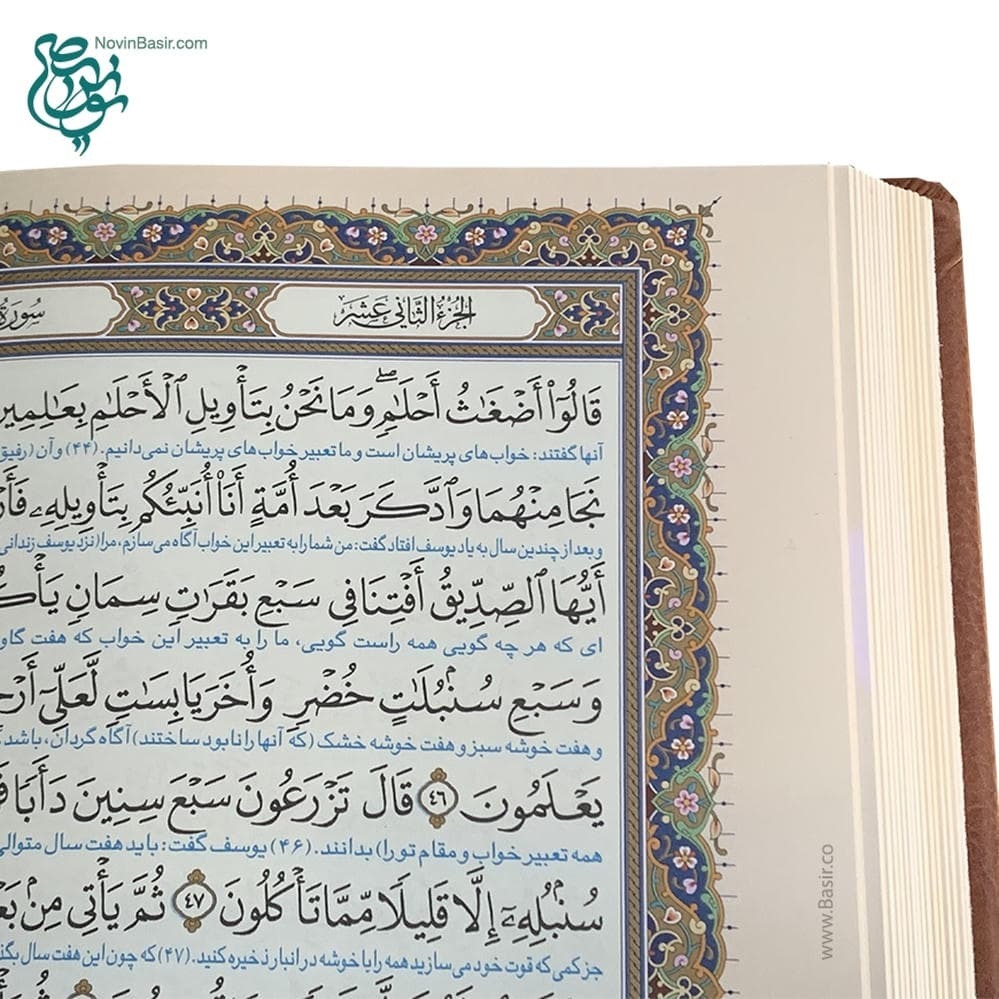 NovinBasir.com
الجزء الثانی عشر
سورة
قَالُوٓا۟ أَضْغَـٰثُ أَحْلَـٰمٍۖ وَمَا نَحْنُ بِتَأْوِيلِ ٱلْأَحْلَـٰمِ بِعَـٰلِمِين
آنها گفتند: خواب‌های پریشان است و ما تعبیر خواب‌های پریشان نمی‌دانیم. (۴۴) و آن (رفیق
نَجَا مِنْهُمَا وَٱدَّكَرَ بَعْدَ أُمَّةٍ أَنَا۠ أُنَبِّئُكُم بِتَأْوِيلِهِۦ فَأَر
و بعد از چندین سال به یاد یوسف افتاد گفت: من شما را به تعبیر این خواب آگاه می‌سازم، مرا (نزد یوسف زندانی
أَيُّهَا ٱلصِّدِّيقُ أَفْتِنَا فِى سَبْعِ بَقَرَٰتٍ سِمَانٍ يَأْك
ای که هر چه گویی همه راست گویی، ما را به تعبیر این خواب که هفت گاو
وَسَبْعِ سُنۢبُلَـٰتٍ خُضْرٍ وَأُخَرَ يَابِسَـٰتٍ لَّعَلِّىٓ أَرْج
و هفت خوشه سبز و هفت خوشه خشک (که آنها را نابود ساختند) آگاه گردان، باشد
يَعْلَمُونَ ٤٦ قَالَ تَزْرَعُونَ سَبْعَ سِنِينَ دَأَبًا فَ
همه تعبیر خواب و مقام تو را) بدانند. (۴۶) یوسف گفت: باید هفت سال متوالی
سُنۢبُلِهِۦٓ إِلَّا قَلِيلًا مِّمَّا تَأْكُلُونَ ٤٧ ثُمَّ يَأْتِى مِنۢ بَع
جز کمی که قوت خود می‌سازید همه را با خوشه در انبار ذخیره کنید. (۴۷) که چون این هفت سال بگذ
www.Basir.co